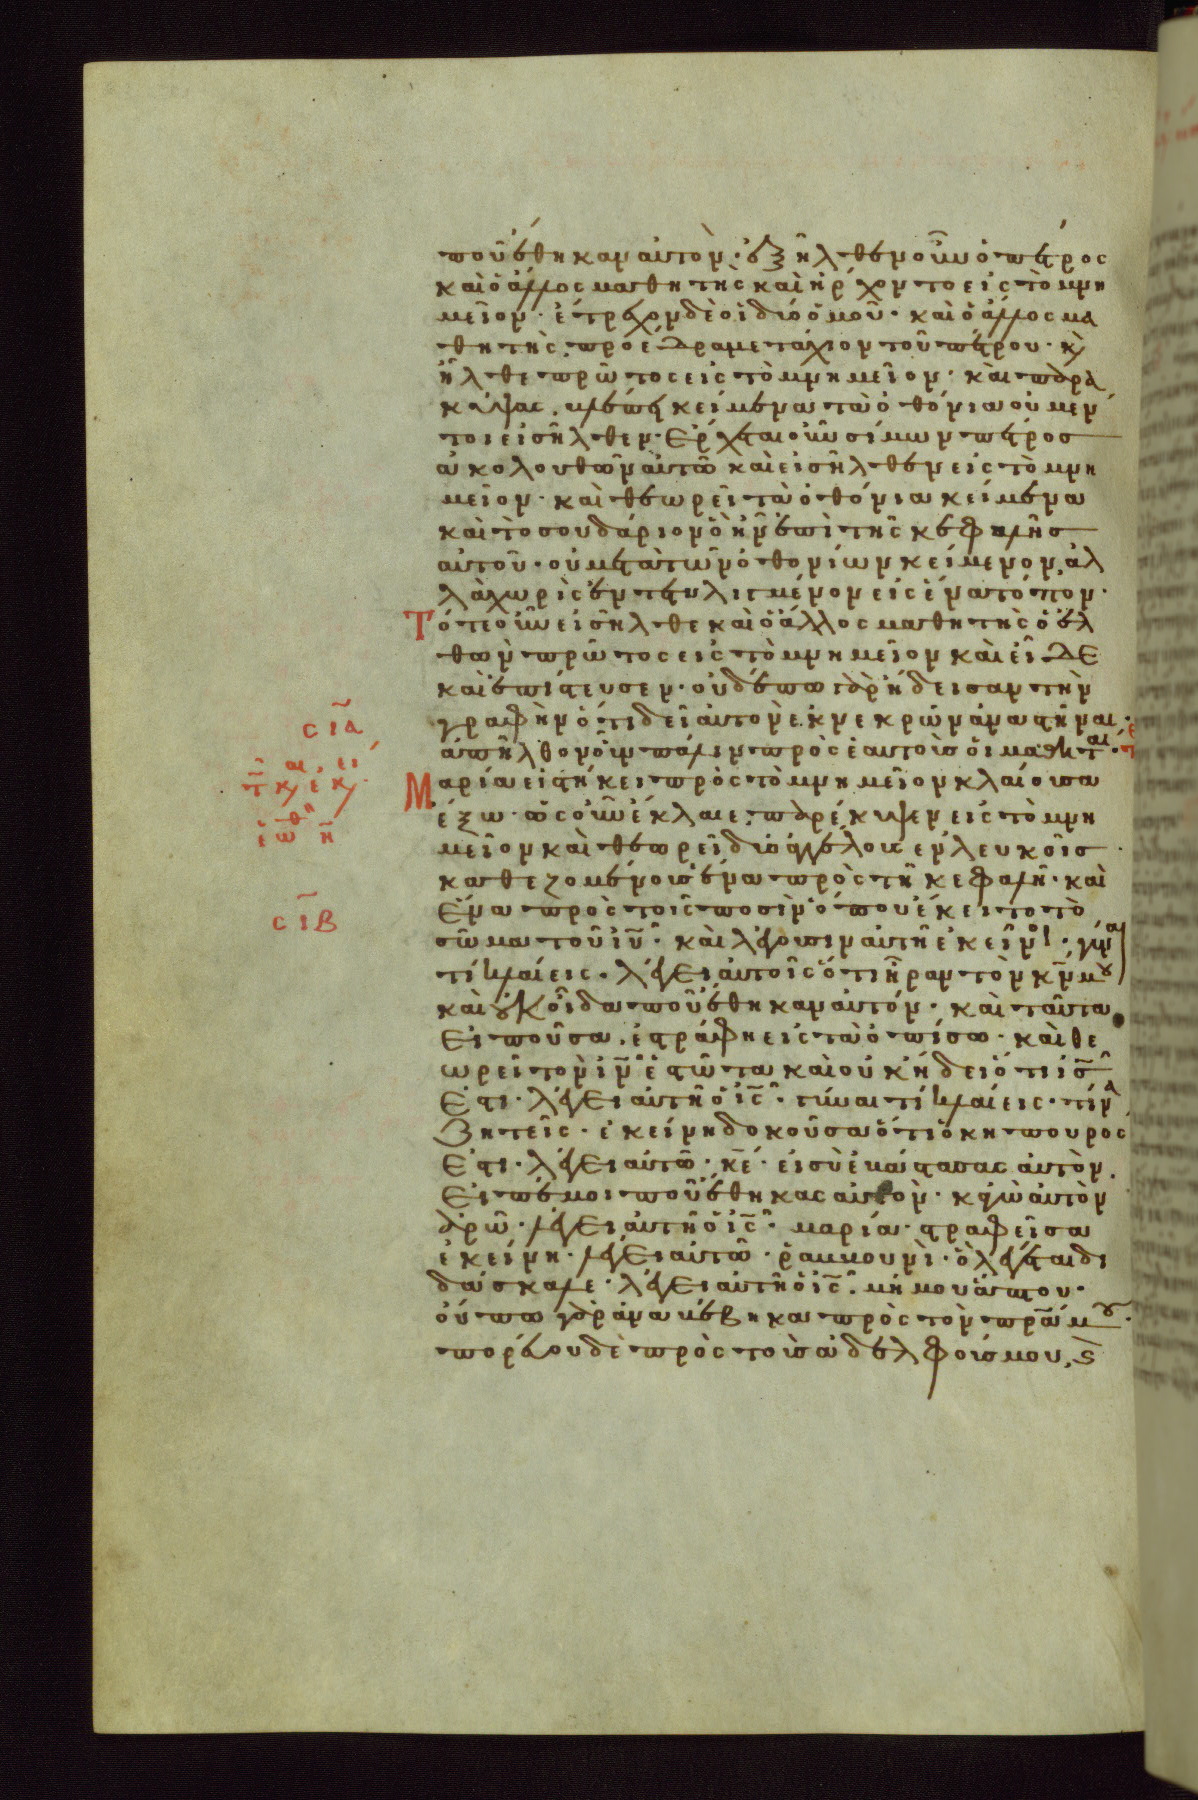 ποῦ ἔθηκαν αὐτόν· ἐξῆλθεν οὖν ὁ πέτρος
καὶ ὁ ἄλλος μαθητὴς καὶ ἤρχοντο εἰς τὸ μνη
μεῖον· ἔτρεχον δὲ οἱ δύο ὁμοῦ· καὶ ὁ ἄλλος μα
θητὴς προέδραμε τάχιον τοῦ πέτρου· κ̀
ἦλθε πρῶτος εἰς τὸ μνημεῖον· καὶ παρα
κύψας, βλέπει κείμενα τὰ ὀθόνια οὐ μέν
τοι εἰσῆλθεν· Ἔρχεται οὖν σίμων πέτρος
ἀκολουθῶν αὐτῶ καὶ εἰσῆλθεν εἰς τὸ μνη
μεῖον· καὶ θεωρεῖ τὰ ὀθόνια κείμενα
καὶ τὸ σουδάριον ὃ ἦν ἐπὶ τῆς κεφαλῆς
αὐτοῦ· οὐ μετὰ τῶν ὀθονίων κείμενον, ἀλ
λὰ χωρὶς ἐντετυλιγμένον εἰς ἕνα τόπον·
Τότε οὖν εἰσῆλθε καὶ ὁ ἄλλος μαθητὴς ὁ ἐλ
θὼν πρῶτος εἰς τὸ μνημεῖον καὶ εἶδε
καὶ ἐπίστευσεν· οὐδέπω γὰρ ἤδεισαν τὴν
γραφὴν ὅτι δεῖ αὐτὸν ἐκ νεκρῶν ἀναστῆναι·
σ̅ι̅α̅
ἀπῆλθον οὖν πάλιν πρὸς ἑαυτοὺς οἱ μαθηταί·
Μαρία εἱστήκει πρὸς τὸ μνημεῖον κλαίουσα
ἔξω· ὡς οὖν ἔκλαιε, παρέκυψεν εἰς τὸ μνη
μεῖον καὶ θεωρεῖ δύο ἀγγέλους ἐν λευκοῖς
καθεζομένους ἕνα πρὸς τῆ κεφαλῆ· καὶ
Ἕνα πρὸς τοῖς ποσὶν ὅπου ἔκειτο τὸ
σ̅ι̅β̅
σῶμα τοῦ ἰ̅υ̅· καὶ λέγουσιν αὐτῆ ἐκεῖνοι· γύναι
τί κλαίεις· λέγει αὐτοῖς ὅτι ἦραν τὸν κ̅ν̅ μου
καὶ οὐκ οἶδα ποῦ ἔθηκαν αὐτόν· καὶ ταῦτα
Εἰποῦσα, ἐστράφη εἰς τὰ ὀπίσω· καὶ θε
ωρεῖ τὸν ἰ̅ν̅ ἑστῶτα καὶ οὐκ ἤδει ὅτι ἰ̅ς̅
Ἐστι· λέγει αὐτῆ ὁ ἰ̅ς̅· γύναι τί κλαίεις· τίνα
Ζητεῖς· ἐκείνη δοκοῦσα ὅτι ὁ κηπουρος
Ἐστι· λέγει αὐτῶ· κ̅ε̅· εἰ σὺ ἐβάστασας αὐτὸν
Εἰπέ μοι ποῦ ἔθηκας αὐτὸν· κἀγὼ αὐτὸν
ἀρῶ· λέγει αὐτῆ ὁ ἰ̅ς̅· μαρία· στραφεῖσα
ἐκείνη· λέγει αὐτῶ· ῥαββουνὶ· ὃ λέγεται δι
δάσκαλε· λέγει αὐτῆ ὁ ἰ̅ς̅· μή μου ἅπτου·
οὔπω γὰρ ἀναβέβηκα πρὸς τὸν π̅ρ̅α̅ μου·
πορεύου δὲ πρὸς τοὺς ἀδελφούς μου, ϛ